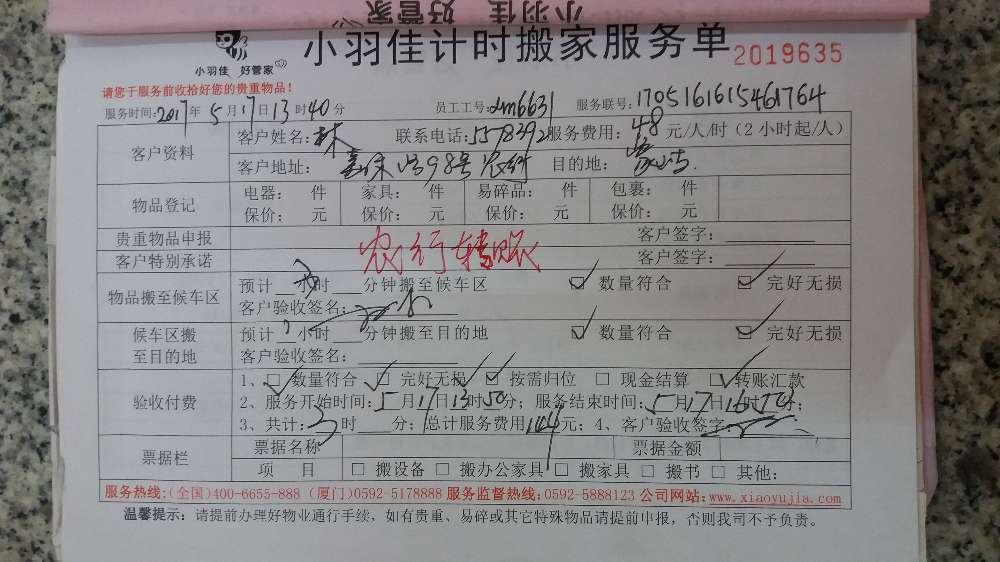 小羽佳 好管家
小羽佳 好管家
小羽佳计时搬家服务单 2019635
请您于服务前收拾好您的贵重物品!
服务时间:2017年5月17日13时40分 员工工号:dm6631 服务联号:1705161615461764
客户资料
客户姓名:林 联系电话:5578392 服务费用:48元/人/时(2小时起/人)
客户地址:98号农行 目的地:
物品登记
电器: 件 家具: 件 易碎品: 件 包裹: 件
保价: 元 保价: 元 保价: 元 保价: 元
贵重物品申报 客户签字:
农行转账
客户特别承诺 客户签字:
物品搬至候车区
预计 小时 分钟搬至候车区 数量符合 完好无损
客户验收签名:
候车区搬至目的地
预计 小时 分钟搬至目的地 数量符合 完好无损
客户验收签名:
验收付费
1、数量符合 完好无损 按需归位 现金结算 转账汇款
2、服务开始时间:5月17日13时50分;服务结束时间:5月17日16时 分;
3、共计:3时 分;总计服务费用144元;4、客户验收签字:
票据栏
票据名称 票据金额
项 目 搬设备 搬办公家具 搬家具 搬书 其他:
服务热线:(全国)400-6655-888 (厦门)0592-5178888 服务监督热线:0592-5888123 公司网站:www.xiaoyujia.com
温馨提示:请提前办理好物业通行手续,如有贵重、易碎或其它特殊物品请提前申报,否则我司不予负责。